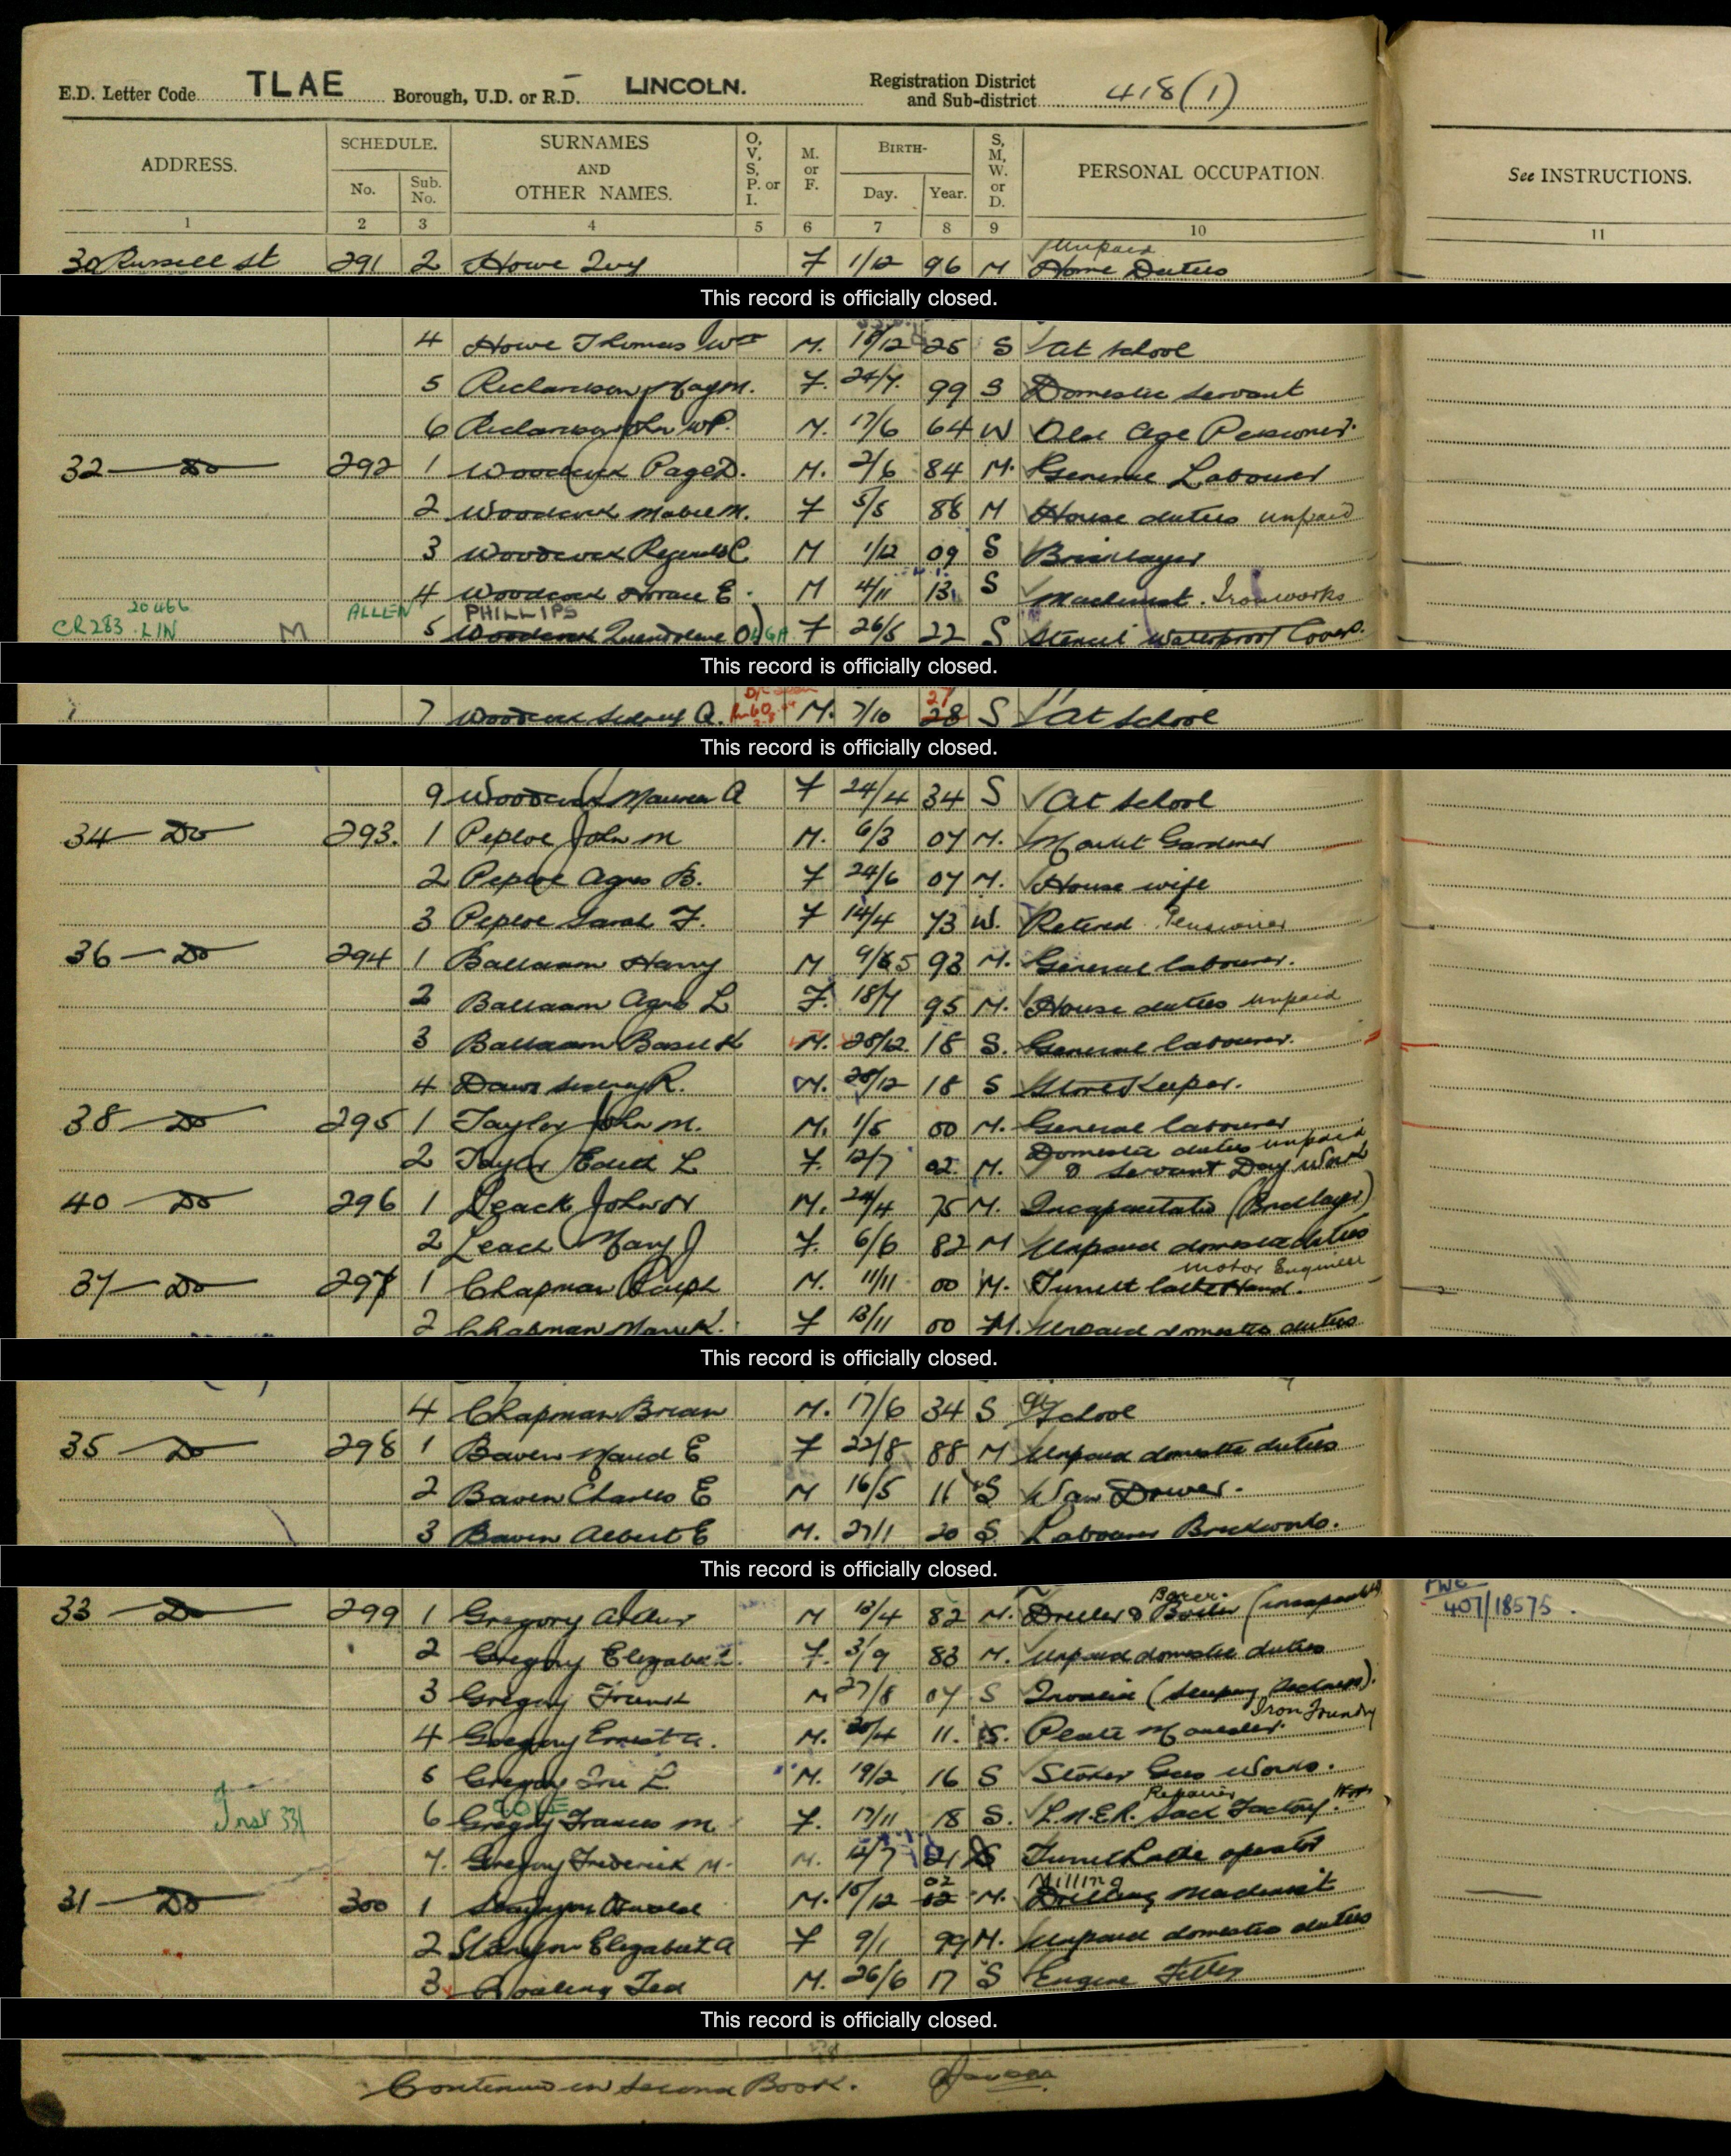 E.D. Letter Code TLAE Borough, U.D. or R.D. LINCOLN. Registration District and Sub-district 418(1)
ADDRESS. SCHEDULE. No. Sub. No. SURNAMES AND OTHER NAMES. O, V, S, P. or I. M. or F. BIRTH- Day. Year. S, M, W. or D. PERSONAL OCCUPATION. See INSTRUCTIONS.
1 2 3 4 5 6 7 8 9 10 11
30 Russell St 291 2 Howe Ivy F 1/12 96 M Unpaid Home Duties
This record is officially closed.
4 Howe Thomas Wm M. 18/12 25 S At School
5 Richardson May M. F. 24/7. 99 S Domestic Servant
6 Richardson John W P. M. 17/6 64 W Old Age Pensioner.
32 Do 292 1 Woodcock Page D. M. 2/6 84 M. General Labourer
2 Woodcock Mabel M. F 5/5 88 M House duties unpaid
3 Woodcock Reginald C M 1/12 09 S Bricklayer
4 Woodcock Horace E. M 4/11 13 S Machinist. Ironworks
20466 CR283 LIN M ALLEN PHILLIPS
5 Woodcock Quendolene O F 26/5 22 S Stencil Waterproof Cover.
This record is officially closed.
7 Woodcock Sidney A. M. 7/10 28 27 S At School
This record is officially closed.
9 Woodcock Maureen A F 24/4 34 S At School
34 Do 293. 1 Peploe John M M. 6/3 07 M. Market Gardener
2 Peploe Agnes B. F 24/6 07 M. House wife
3 Peploe Sarah F. F 14/4 73 W. Retired Pensioner
36 Do 294 1 Ballaam Harry M 9/5 93 M. General labourer.
2 Ballaam Agnes L F. 18/7 95 M. House duties unpaid
3 Ballaam Basil K M. 28/12. 18 S. General labourer.
4 Daws Sidney R. M. 28/12 18 S Store Keeper.
38 Do 295 1 Taylor John M. M. 1/5 00 M. General labourer
2 Taylor Edith L F. 12/7 02. M. Domestic duties unpaid & Servant Day Work
40 Do 296 1 Leach John W M. 24/4 75 M. Incapacitated (Bricklayer)
2 Leach Mary J F. 6/6 82 M Unpaid domestic duties
37 Do 297 1 Chapman Ralph M. 11/11 00 M. Turret lathe Hand. Motor Engineer
2 Chapman Marie K. F 13/11 00 M. Unpaid domestic duties
This record is officially closed.
4 Chapman Brian M. 17/6 34 S At School
35 Do 298 1 Baven Maud E F 22/8 88 M Unpaid domestic duties
2 Baven Charles E M 16/5 11 S Van Driver.
3 Baven Albert E M. 27/1 20 S Labourer Brickworks.
This record is officially closed.
33 Do 299 1 Gregory Arthur M 13/4 82 M. Driller & Borer 407/18575.
2 Gregory Elizabeth. F. 3/9 83 M. Unpaid domestic duties
3 Gregory Frank M 27/8 07 S Invalid (Sleeping Sickness).
4 Gregory Ernest A. M. 20/4 11. S. Plate Moulder. Iron Foundry
5 Gregory Ira L M. 19/2 16 S Stoker Gas Works.
Inst 331 6 Gregory Frances M F. 17/11 18 S. L.N.E.R. Sack Factory. Repairer
7. Gregory Frederick M. M. 12/7 21 S Turret Lathe operator
31 Do 300 1 Stanyon Oswald M. 15/12 02 M. Milling Machinist
2 Stanyon Elizabeth A F 9/1 99 M. Unpaid domestic duties
3 Ted M. 26/6 17 S Engine Fitter
This record is officially closed.
Continued in Second Book.